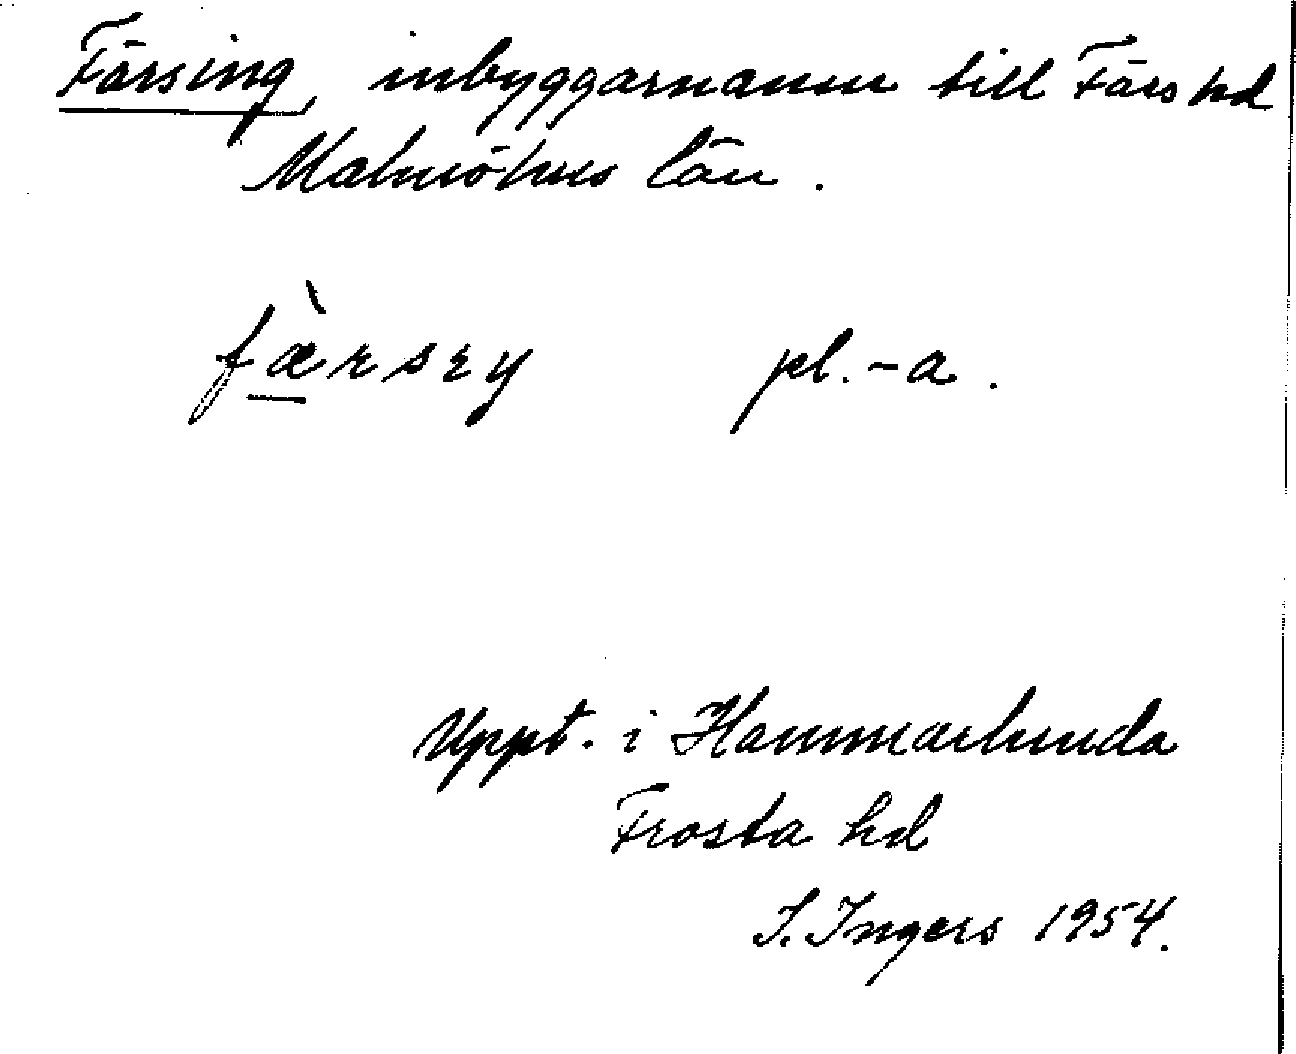 Färsing, inbyggarnamn till Färs hd
Malmöhus län.
fæ̀rsıŋ pl. -a.
Uppt. i Hammarlunda
Frosta hd
I. Ingers 1954.